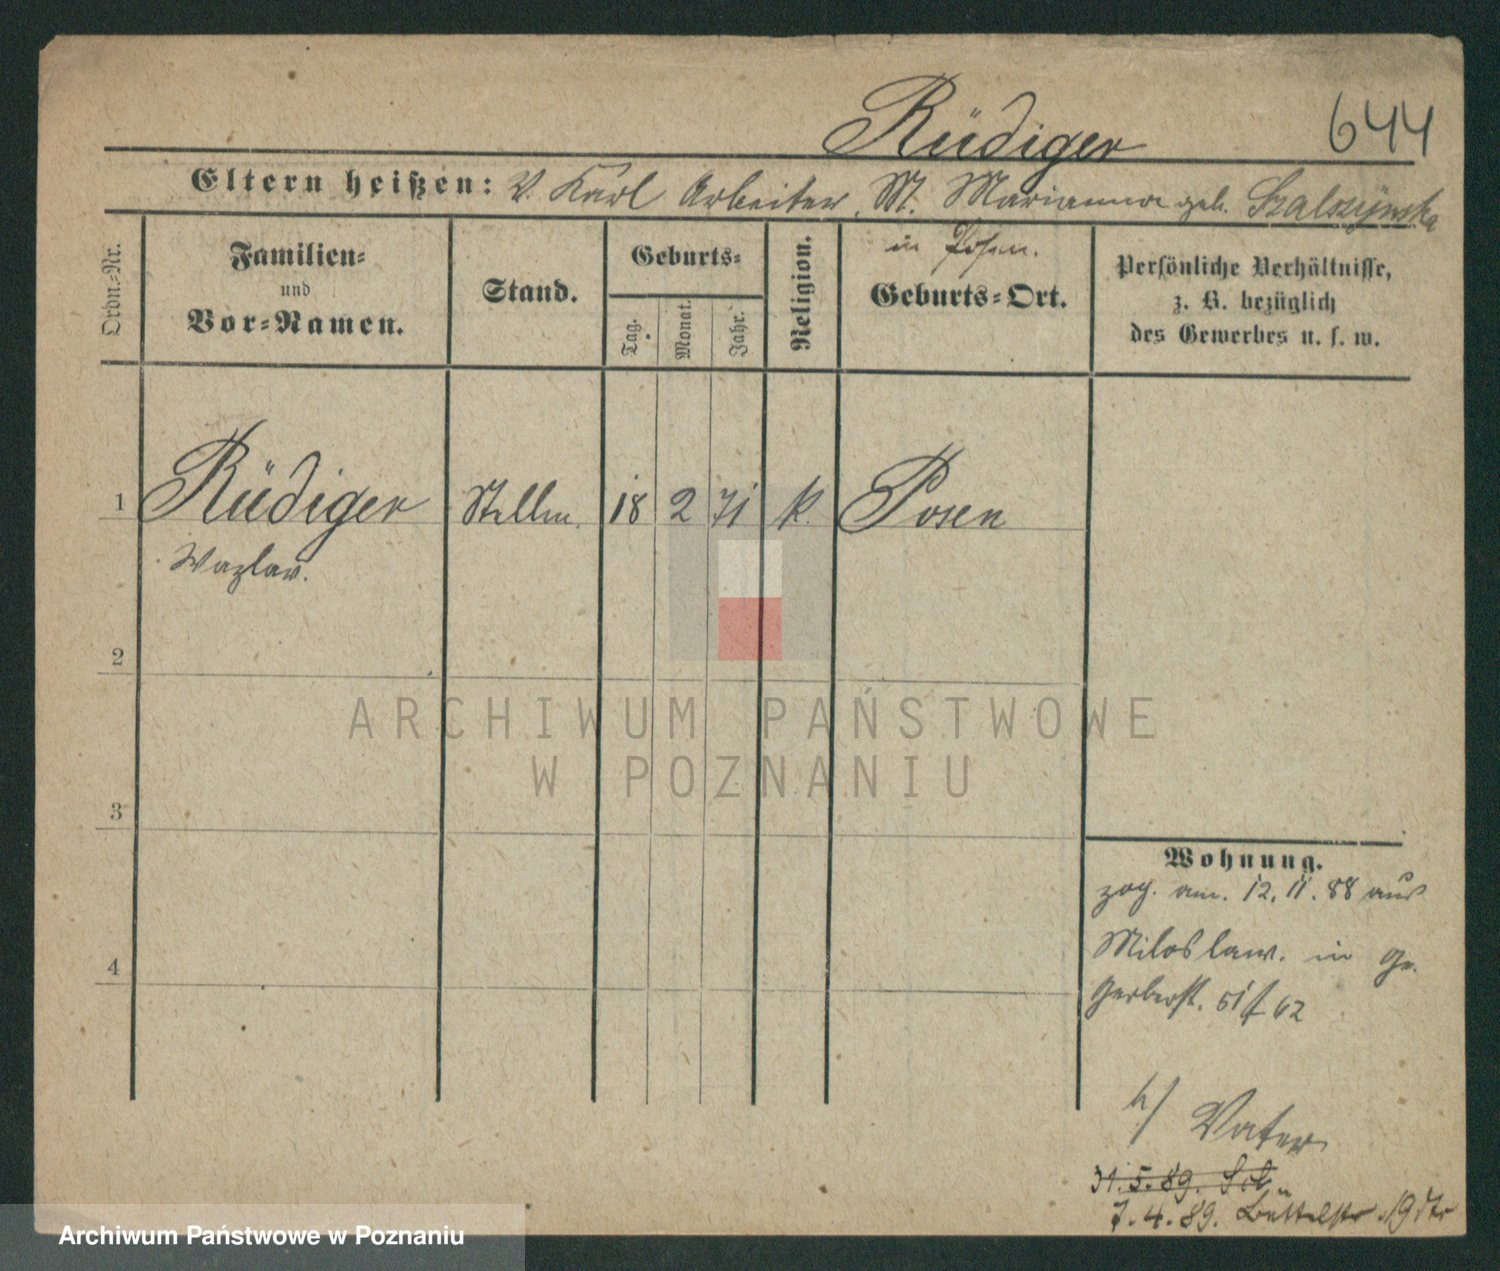 Rüdiger
644
Eltern heißen: V. Karl Arbeiter, M. Marianna geb.
in Posen.
Ordn.=Nr.
Familien=
und
Vor=Namen.
Stand.
Geburts=
Tag.
Monat.
Jahr.
Religion.
Geburts=Ort.
Persönliche Verhältnisse,
z. B. bezüglich
des Gewerbes u. s. w.
1 Rüdiger Stellm. 18 2 71 k. Posen
Wazlav.
2
3
4
Wohnung.
zog. am. 12. 11. 88 aus
Miloslaw. in Gr.
Gerberst. 51
b/ Vater
31. 5. 89.
7. 4. 89. Büttelstr. 19
ARCHIWUM PAŃSTWOWE
W POZNANIU
Archiwum Państwowe w Poznaniu